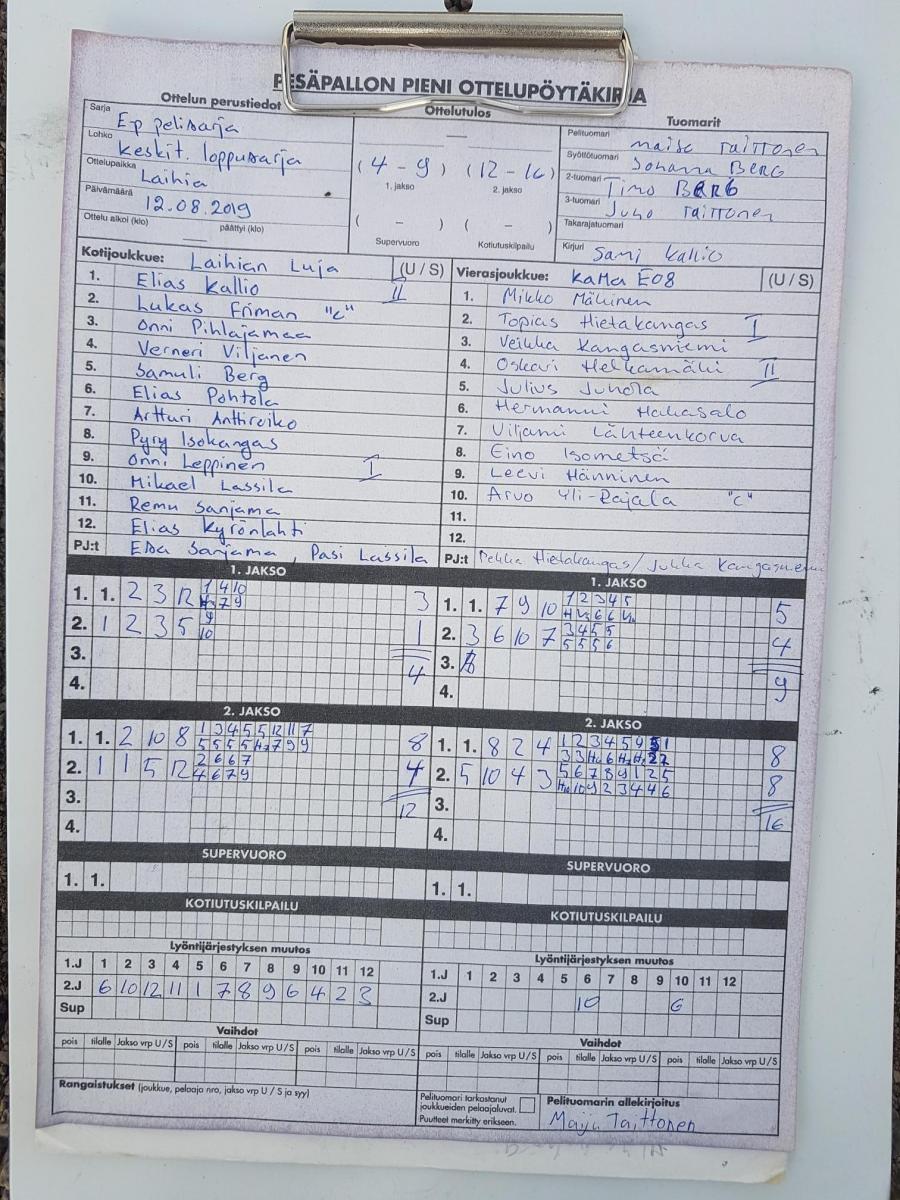 PESÄPALLON PIENI OTTELUPÖYTÄKIRJA
Ottelun perustiedot
Sarja Ep pelisarja
Lohko Keskit. loppusarja
Ottelupaikka Laihia
Päivämäärä 12.08.2019
Ottelu alkoi (klo) päättyi (klo)
Ottelutulos
(4 - 9) (12 - 16)
1. jakso 2. jakso
( - ) ( - )
Supervuoro Kotiutuskilpailu
Tuomarit
Pelituomari Taittonen
Syöttötuomari Johanna BERG
2-tuomari Timo BERG
3-tuomari Juho Taittonen
Takarajatuomari
Kirjuri Sami Kallio
Kotijoukkue: Laihian Luja (U / S)
1. Elias Kallio II
2. Lukas Friman "C"
3. Onni Pihlajamaa
4. Verneri Viljanen
5. Samuli Berg
6. Elias Pohtola
7. Artturi Anthroiko
8. Pyry Isokangas
9. Onni Leppinen I
10. Mikael Lassila
11. Remu Sanjama
12. Elias Kyrönlahti
PJ:t Esa Sanjama, Pasi Lassila
Vierasjoukkue: KaMa E08 (U / S)
1. Mikko Mäkinen
2. Topias Hietakangas I
3. Veikka Kangasniemi
4. Oskari Helkamäki II
5. Julius Juhola
6. Hermanni Hakasalo
7. Viljami Lähteenkorva
8. Eino Isometsä
9. Leevi Hänninen
10. Arvo Yli-Rajala "C"
11.
12.
PJ:t Pekka Hietakangas / Jukka Kangasniemi
1. JAKSO
1. 1. 2 3 12 1 4 10 3
7 9
2. 1 2 3 5 9 1
10
3. 4
4.
1. JAKSO
1. 1. 7 9 10 1 2 3 4 5 5
6 6
2. 3 6 10 7 3 4 5 5 4
5 5 5 6
3. 9
4.
2. JAKSO
1. 1. 2 10 8 1 3 4 5 5 12 11 7 8
5 5 5 5 7 9 9
2. 1 1 5 12 2 6 6 7 4
4 6 7 9
3. 12
4.
2. JAKSO
1. 1. 8 2 4 1 2 3 4 5 9 1 8
3 3 6 2 2
2. 5 10 4 3 5 6 7 8 9 1 2 5 8
10 9 2 3 4 4 6
3. 16
4.
SUPERVUORO
1. 1.
SUPERVUORO
1. 1.
KOTIUTUSKILPAILU
KOTIUTUSKILPAILU
Lyöntijärjestyksen muutos
1.J 1 2 3 4 5 6 7 8 9 10 11 12
2.J 6 10 12 11 1 7 8 9 6 4 2 3
Sup
Lyöntijärjestyksen muutos
1.J 1 2 3 4 5 6 7 8 9 10 11 12
2.J 10 6
Sup
Vaihdot
pois tilalle Jakso vrp U / S pois tilalle Jakso vrp U / S pois tilalle Jakso vrp U / S
Vaihdot
pois tilalle Jakso vrp U / S pois tilalle Jakso vrp U / S pois tilalle Jakso vrp U / S
Rangaistukset (joukkue, pelaaja nro, jakso vrp U / S ja syy)
Pelituomari tarkastanut
joukkueiden pelaajaluvat.
Puutteet merkitty erikseen.
Pelituomarin allekirjoitus
Maiju Taittonen